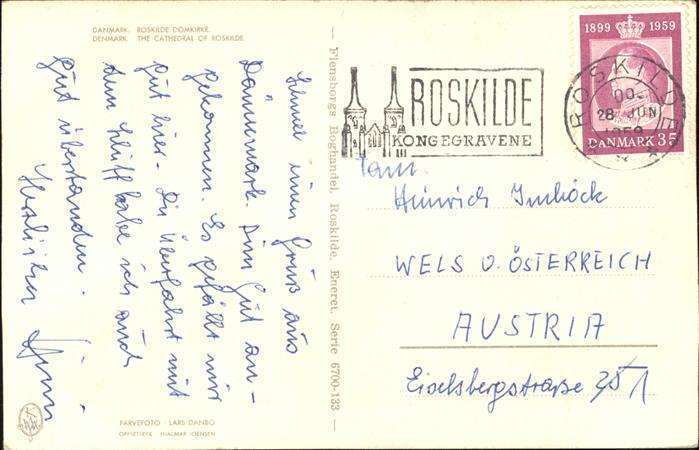 DANMARK. ROSKILDE DOMKIRKE.
DENMARK. THE CATHEDRAL OF ROSKILDE.
einen Gruß aus
Dänemark. Bin gut an-
gekommen. Es gefällt mir
gut hier. Die Überfahrt mit
dem Schiff habe ich auch
gut überstanden.
FARVEFOTO: LARS DANBO
OFFSETTRYK
— Flensborgs Boghandel, Roskilde. Eneret. Serie 6700-133 —
ROSKILDE
KONGEGRAVENE
ROSKILDE
28. JUN
1959
1899 1959
DANMARK 35
Fam.
Heinrich Imhöck
WELS O. ÖSTERREICH
AUSTRIA
Eiselsbergstraße